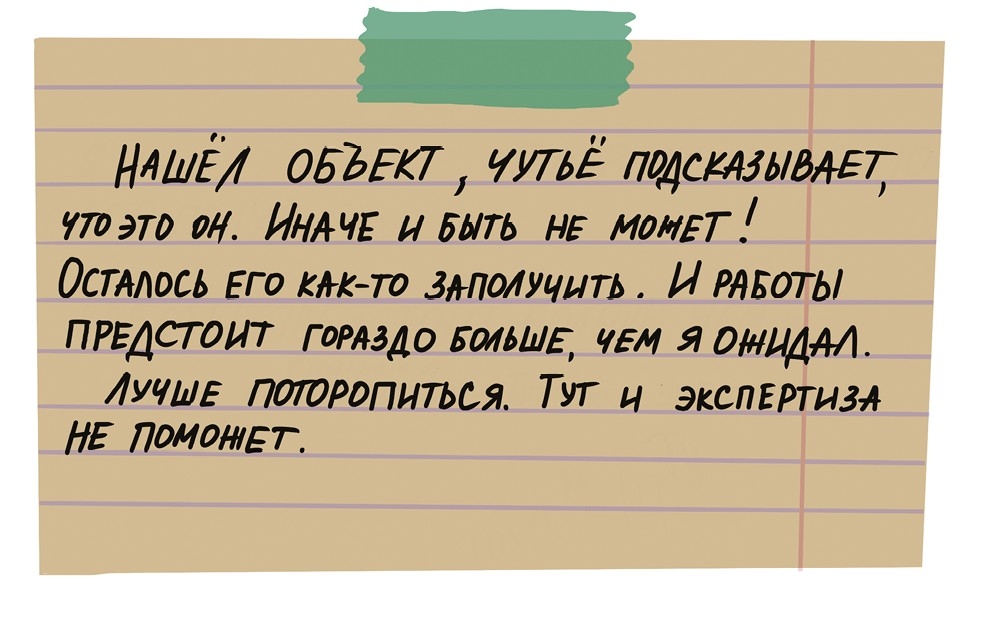 Нашёл объект, чутьё подсказывает,
что это он. Иначе и быть не может!
Осталось его как-то заполучить. И работы
предстоит гораздо больше, чем я ожидал.
Лучше поторопиться. Тут и экспертиза
не поможет.